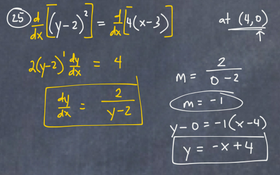 25 d/dx[(y-2)²] = d/dx[4(x-3)]
at (4,0)
2(y-2)¹ dy/dx = 4
dy/dx = 2/(y-2)
m = 2/(0-2)
m = -1
y-0 = -1(x-4)
y = -x+4